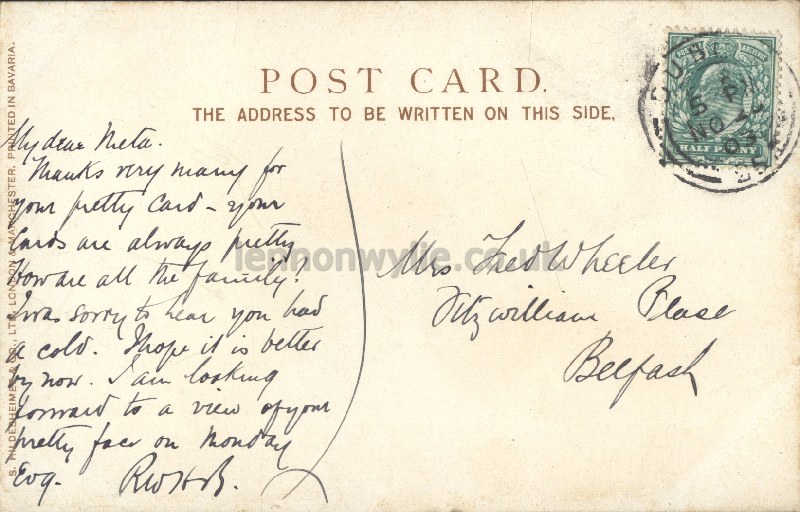 POST CARD.
THE ADDRESS TO BE WRITTEN ON THIS SIDE.
S. HILDESHEIMER & CO., LTD. LONDON & MANCHESTER. PRINTED IN BAVARIA.
My dear Meta.
Thanks very many for
your pretty card - your
cards are always pretty
How are all the family?
I was sorry to hear you had
a cold. I hope it is better
by now. I am looking
forward to a view of your
pretty face on Monday
Evg. RWHB.
Mrs Fred Wheeler
Fitzwilliam Place
Belfast
DUBLIN
5 PM
NO 2
03
HALF PENNY
lennonwylie.co.uk